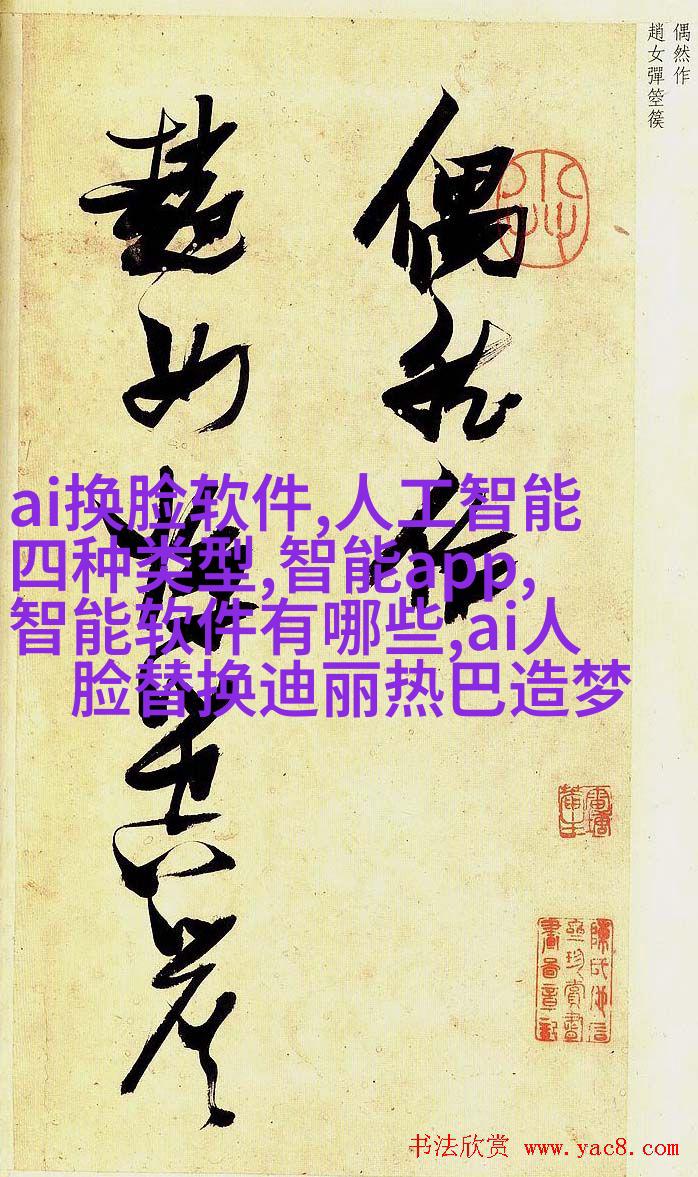 偶然作
趙女彈箜篌
偶然作
趙女彈箜篌
ai换脸软件,人工智能
四种类型,智能app,
智能软件有哪些,ai人
脸替换迪丽热巴造梦
书法欣赏 www.yac8.com